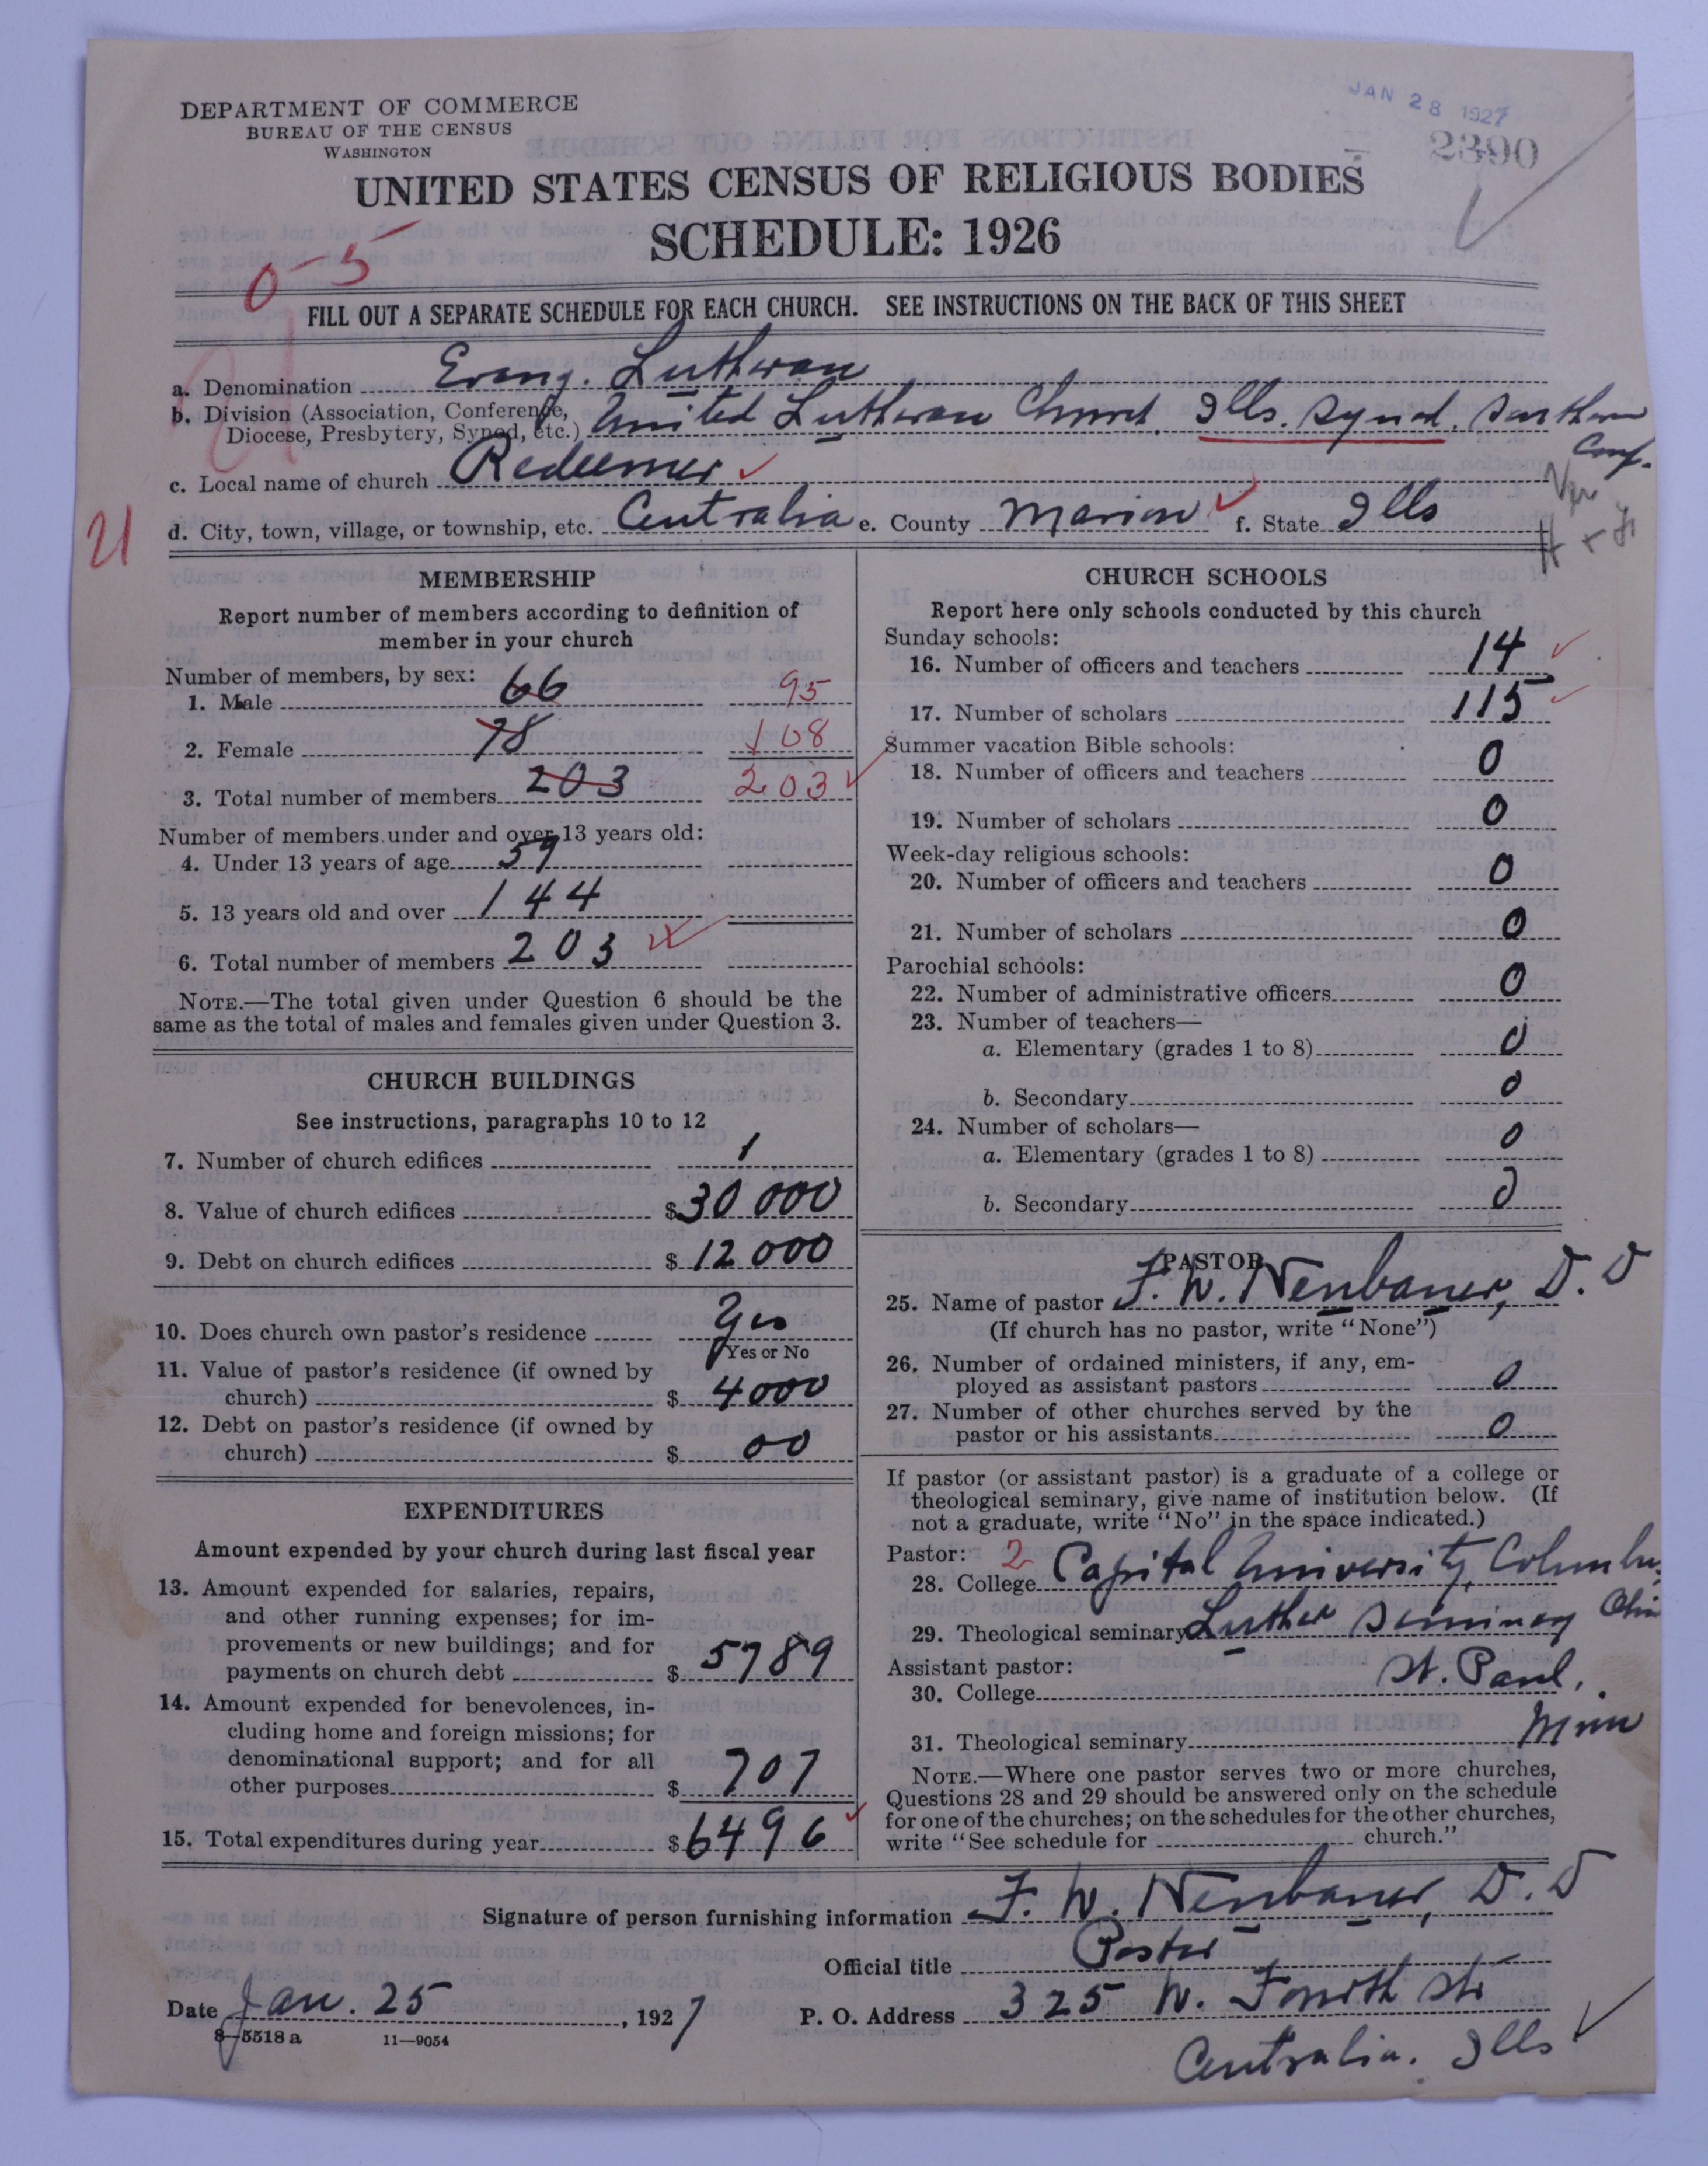 JAN 28 1927
2390
DEPARTMENT OF COMMERCE
BUREAU OF THE CENSUS
WASHINGTON
UNITED STATES CENSUS OF RELIGIOUS BODIES
SCHEDULE: 1926
0-5
FILL OUT A SEPARATE SCHEDULE FOR EACH CHURCH. SEE INSTRUCTIONS ON THE BACK OF THIS SHEET
a. Denomination Evang. Lutheran
b. Division (Association, Conference, Diocese, Presbytery, Synod, etc.) United Lutheran Church, Ills. Synod. Southern Conf.
c. Local name of church Redeemer
21
d. City, town, village, or township, etc. Centralia e. County Marion f. State Ills
MEMBERSHIP
Report number of members according to definition of
member in your church
Number of members, by sex:
1. Male 66 95
2. Female 78 108
3. Total number of members 203 203
Number of members under and over 13 years old:
4. Under 13 years of age 59
5. 13 years old and over 144
6. Total number of members 203
NOTE.—The total given under Question 6 should be the
same as the total of males and females given under Question 3.
CHURCH BUILDINGS
See instructions, paragraphs 10 to 12
7. Number of church edifices 1
8. Value of church edifices $30 000
9. Debt on church edifices $12 000
10. Does church own pastor's residence Yes
Yes or No
11. Value of pastor's residence (if owned by
church) $4000
12. Debt on pastor's residence (if owned by
church) $00
EXPENDITURES
Amount expended by your church during last fiscal year
13. Amount expended for salaries, repairs,
and other running expenses; for im-
provements or new buildings; and for
payments on church debt $5789
14. Amount expended for benevolences, in-
cluding home and foreign missions; for
denominational support; and for all
other purposes $707
15. Total expenditures during year $6496
CHURCH SCHOOLS
Report here only schools conducted by this church
Sunday schools:
16. Number of officers and teachers 14
17. Number of scholars 115
Summer vacation Bible schools:
18. Number of officers and teachers 0
19. Number of scholars 0
Week-day religious schools:
20. Number of officers and teachers 0
21. Number of scholars 0
Parochial schools:
22. Number of administrative officers 0
23. Number of teachers—
a. Elementary (grades 1 to 8) 0
b. Secondary 0
24. Number of scholars—
a. Elementary (grades 1 to 8) 0
b. Secondary 0
PASTOR
25. Name of pastor F. W. Neubauer, D. D
(If church has no pastor, write "None")
26. Number of ordained ministers, if any, em-
ployed as assistant pastors 0
27. Number of other churches served by the
pastor or his assistants 0
If pastor (or assistant pastor) is a graduate of a college or
theological seminary, give name of institution below. (If
not a graduate, write "No" in the space indicated.)
Pastor: 2
28. College Capital University, Columbus, Ohio
29. Theological seminary Luther Seminary
Assistant pastor: St. Paul,
30. College
31. Theological seminary Minn
NOTE.—Where one pastor serves two or more churches,
Questions 28 and 29 should be answered only on the schedule
for one of the churches; on the schedules for the other churches,
write "See schedule for church."
Signature of person furnishing information F. W. Neubauer, D. D
Official title Pastor
Date Jan. 25, 1927 P. O. Address 325 W. Fourth Str
8-5518 a 11-9054
Centralia. Ills